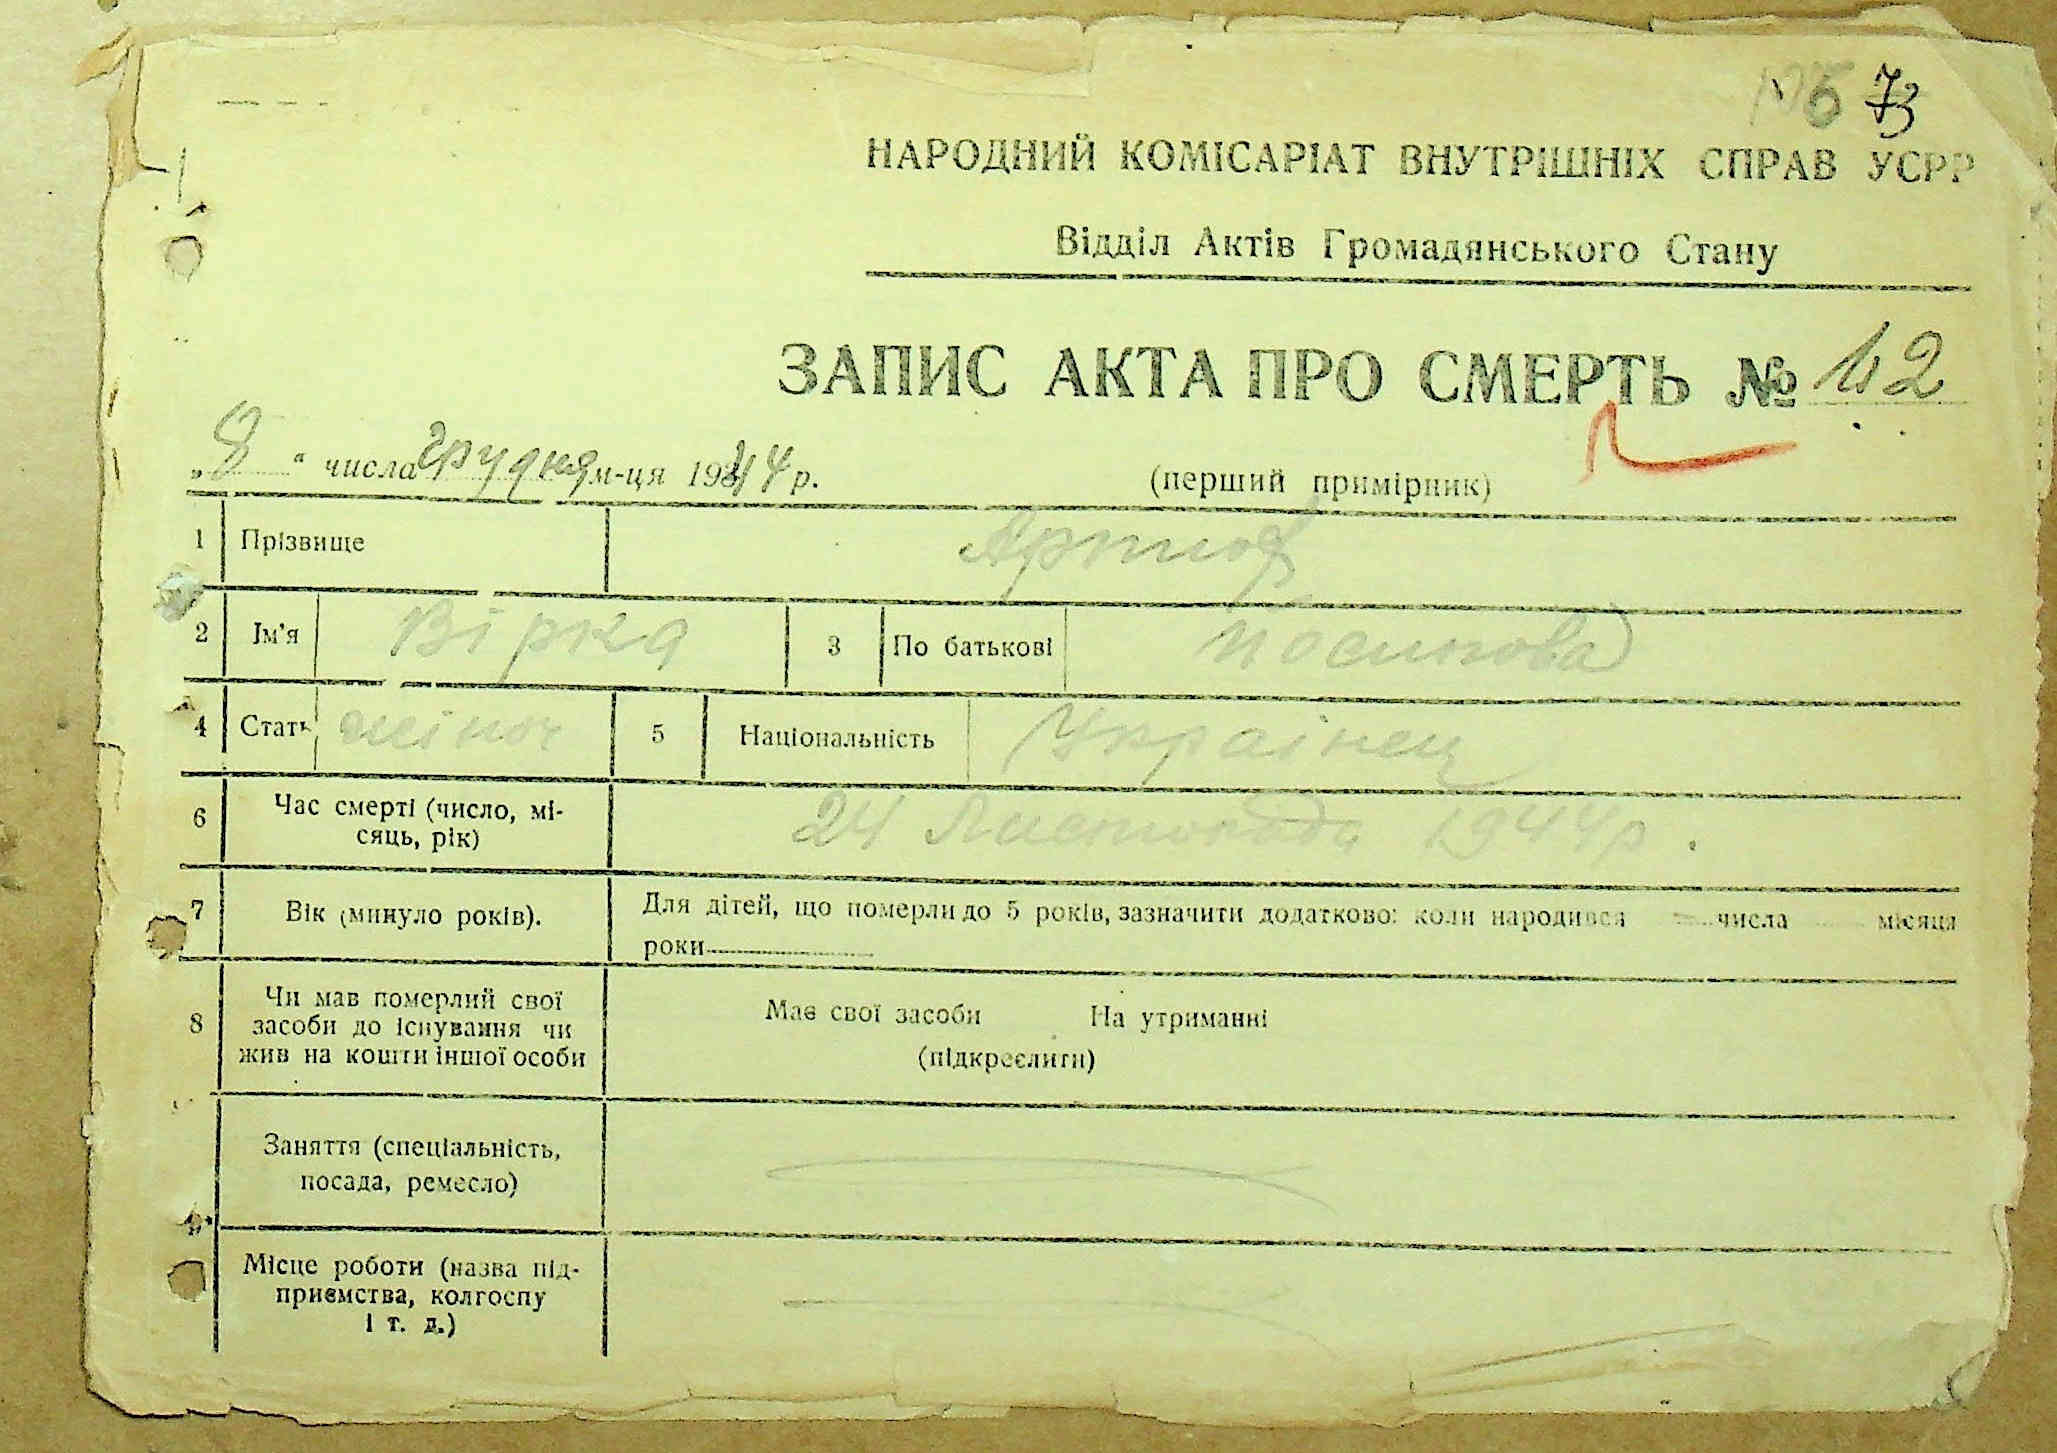 73
НАРОДНИЙ КОМІСАРІАТ ВНУТРІШНІХ СПРАВ УСРР
Відділ Актів Громадянського Стану
ЗАПИС АКТА ПРО СМЕРТЬ № 42
„8“ числа грудня м-ця 1944 р.
(перший примірник)
1 Прізвище
2 Ім'я Вірка 3 По батькові Йосипова
4 Стать жіноч 5 Національність Українец
6 Час смерті (число, мі-
сяць, рік) 24 Листопада 1944 р.
7 Вік (минуло років). Для дітей, що померли до 5 років, зазначити додатково: коли народився числа місяця
роки
8 Чи мав померлий свої
засоби до існування чи
жив на кошти іншої особи
Має свої засоби На утриманні
(підкреслити)
Заняття (спеціальність,
посада, ремесло)
Місце роботи (назва під-
приємства, колгоспу
і т. д.)